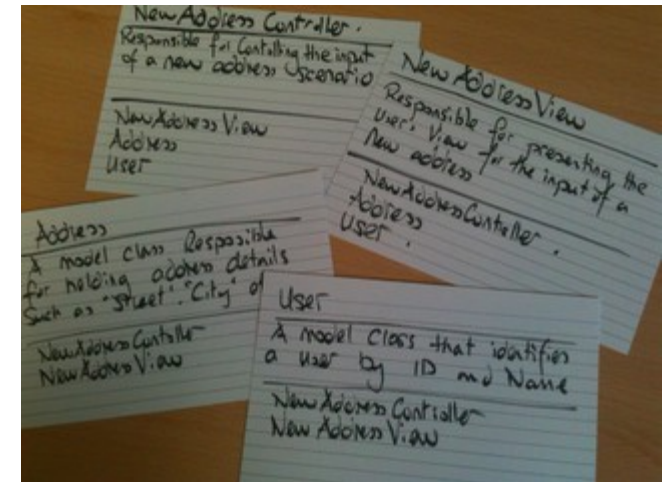 New Address Controller.
Responsible for Controlling the input
of a new address scenario
New Address View
Address
User
New Address View
Responsible for presenting the
User's View for the input of a
new address
New Address Controller.
Address
User.
Address
A model class Resposible
for holding address details
Such as "Street". "City"
New Address Controller
New Address View
User
A model Class that identifies
a user by ID and Name
New Address Controller
New Address View